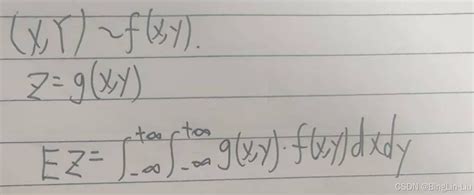 (X,Y)~f(x,y).
Z=g(X,Y)
EZ=∫_{-∞}^{+∞}∫_{-∞}^{+∞}g(x,y)·f(x,y)dxdy
CSDN @BingLin-Liu